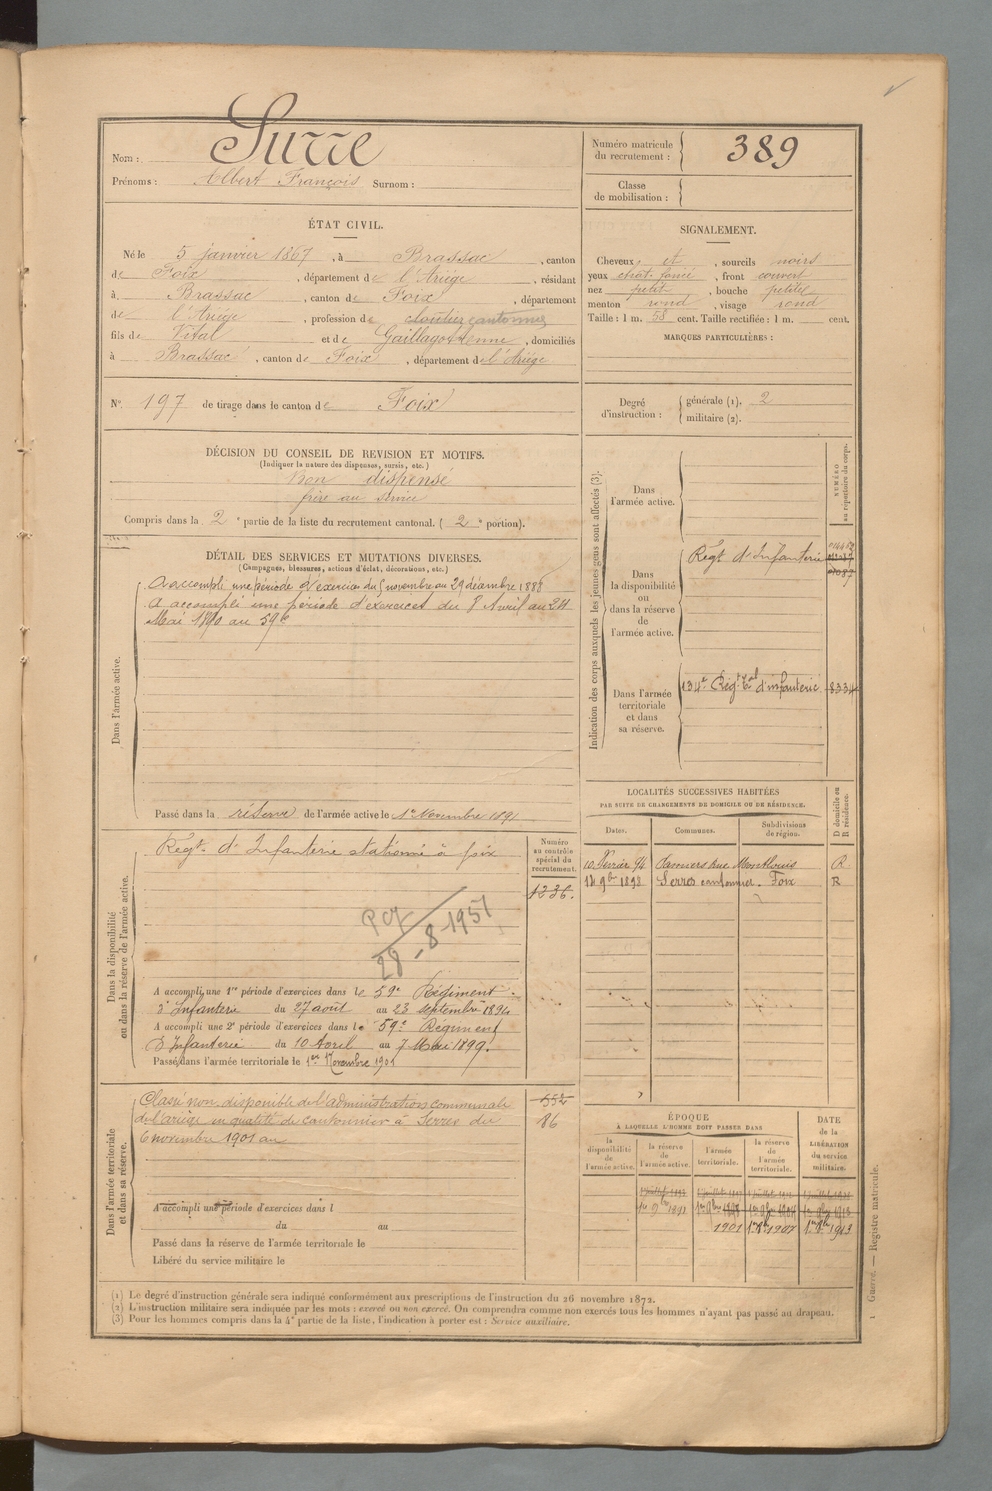 Nom : Surre
Prénoms : Albert François Surnom :
Numéro matricule du recrutement : 389
Classe de mobilisation :
ÉTAT CIVIL.
Né le 5 janvier 1867, à Brassac, canton
de Foix, département de l'Ariège, résidant
à Brassac, canton de Foix, département
de l'Ariège, profession de cloutier cantonnier
fils de Vital et de Gaillagot Anne, domiciliés
à Brassac, canton de Foix, département de l'Ariège
SIGNALEMENT.
Cheveux et, sourcils noirs
yeux chat. foncé, front couvert
nez petit, bouche petite
menton rond, visage rond
Taille : 1 m. 58 cent. Taille rectifiée : 1 m. cent.
MARQUES PARTICULIÈRES :
N° 197 de tirage dans le canton de Foix
Degré d'instruction : générale (1). 2
militaire (2).
DÉCISION DU CONSEIL DE REVISION ET MOTIFS.
(Indiquer la nature des dispenses, sursis, etc.)
Bon dispensé
frère au service
Compris dans la 2e partie de la liste du recrutement cantonal. (2e portion).
DÉTAIL DES SERVICES ET MUTATIONS DIVERSES.
(Campagnes, blessures, actions d'éclat, décorations, etc.)
Dans l'armée active.
A accompli une période d'exercices du 5 novembre au 29 décembre 1888
A accompli une période d'exercices du 8 Avril au 24
Mai 1890 au 59e
Passé dans la réserve de l'armée active le 1er Novembre 1891
Indication des corps auxquels les jeunes gens sont affectés (3).
NUMÉRO au répertoire du corps.
Dans l'armée active.
Dans la disponibilité ou dans la réserve de l'armée active.
Régt d'Infanterie
Dans l'armée territoriale et dans sa réserve.
134e Régt tal d'infanterie 8334
LOCALITÉS SUCCESSIVES HABITÉES
PAR SUITE DE CHANGEMENTS DE DOMICILE OU DE RÉSIDENCE.
Dates. Communes. Subdivisions de région. D domicile ou R résidence.
10 Février 94 Pamiers rue Montlouis R
12 9bre 1898 Serres cantonnier. Foix R
Dans la disponibilité ou dans la réserve de l'armée active.
Numéro au contrôle spécial du recrutement.
Régt. d'Infanterie stationné à foix
1236.
28-8-1951
A accompli une 1re période d'exercices dans le 59e Régiment
d'Infanterie du 27 août au 23 septembre 1894
A accompli une 2e période d'exercices dans le 59e Régiment
d'Infanterie du 10 Avril au 7 Mai 1899.
Passé dans l'armée territoriale le 1er Novembre 1901
Dans l'armée territoriale et dans sa réserve.
Classé non disponible de l'administration communale
de l'ariège en qualité de cantonnier à Serres du
6 novembre 1901 au
552
86
A accompli une période d'exercices dans l
du au
Passé dans la réserve de l'armée territoriale le
Libéré du service militaire le
ÉPOQUE
À LAQUELLE L'HOMME DOIT PASSER DANS
la disponibilité de l'armée active. la réserve de l'armée active. l'armée territoriale. la réserve de l'armée territoriale. DATE de la LIBÉRATION du service militaire.
1er 9bre 1891 1er 9bre 1898 1er 9bre 1904 1er 9bre 1913
1901 1er 9bre 1907 1er 9bre 1913
(1) Le degré d'instruction générale sera indiqué conformément aux prescriptions de l'instruction du 26 novembre 1872.
(2) L'instruction militaire sera indiquée par les mots : exercé ou non exercé. On comprendra comme non exercés tous les hommes n'ayant pas passé au drapeau.
(3) Pour les hommes compris dans la 4e partie de la liste, l'indication à porter est : Service auxiliaire.
Guerre. — Registre matricule.